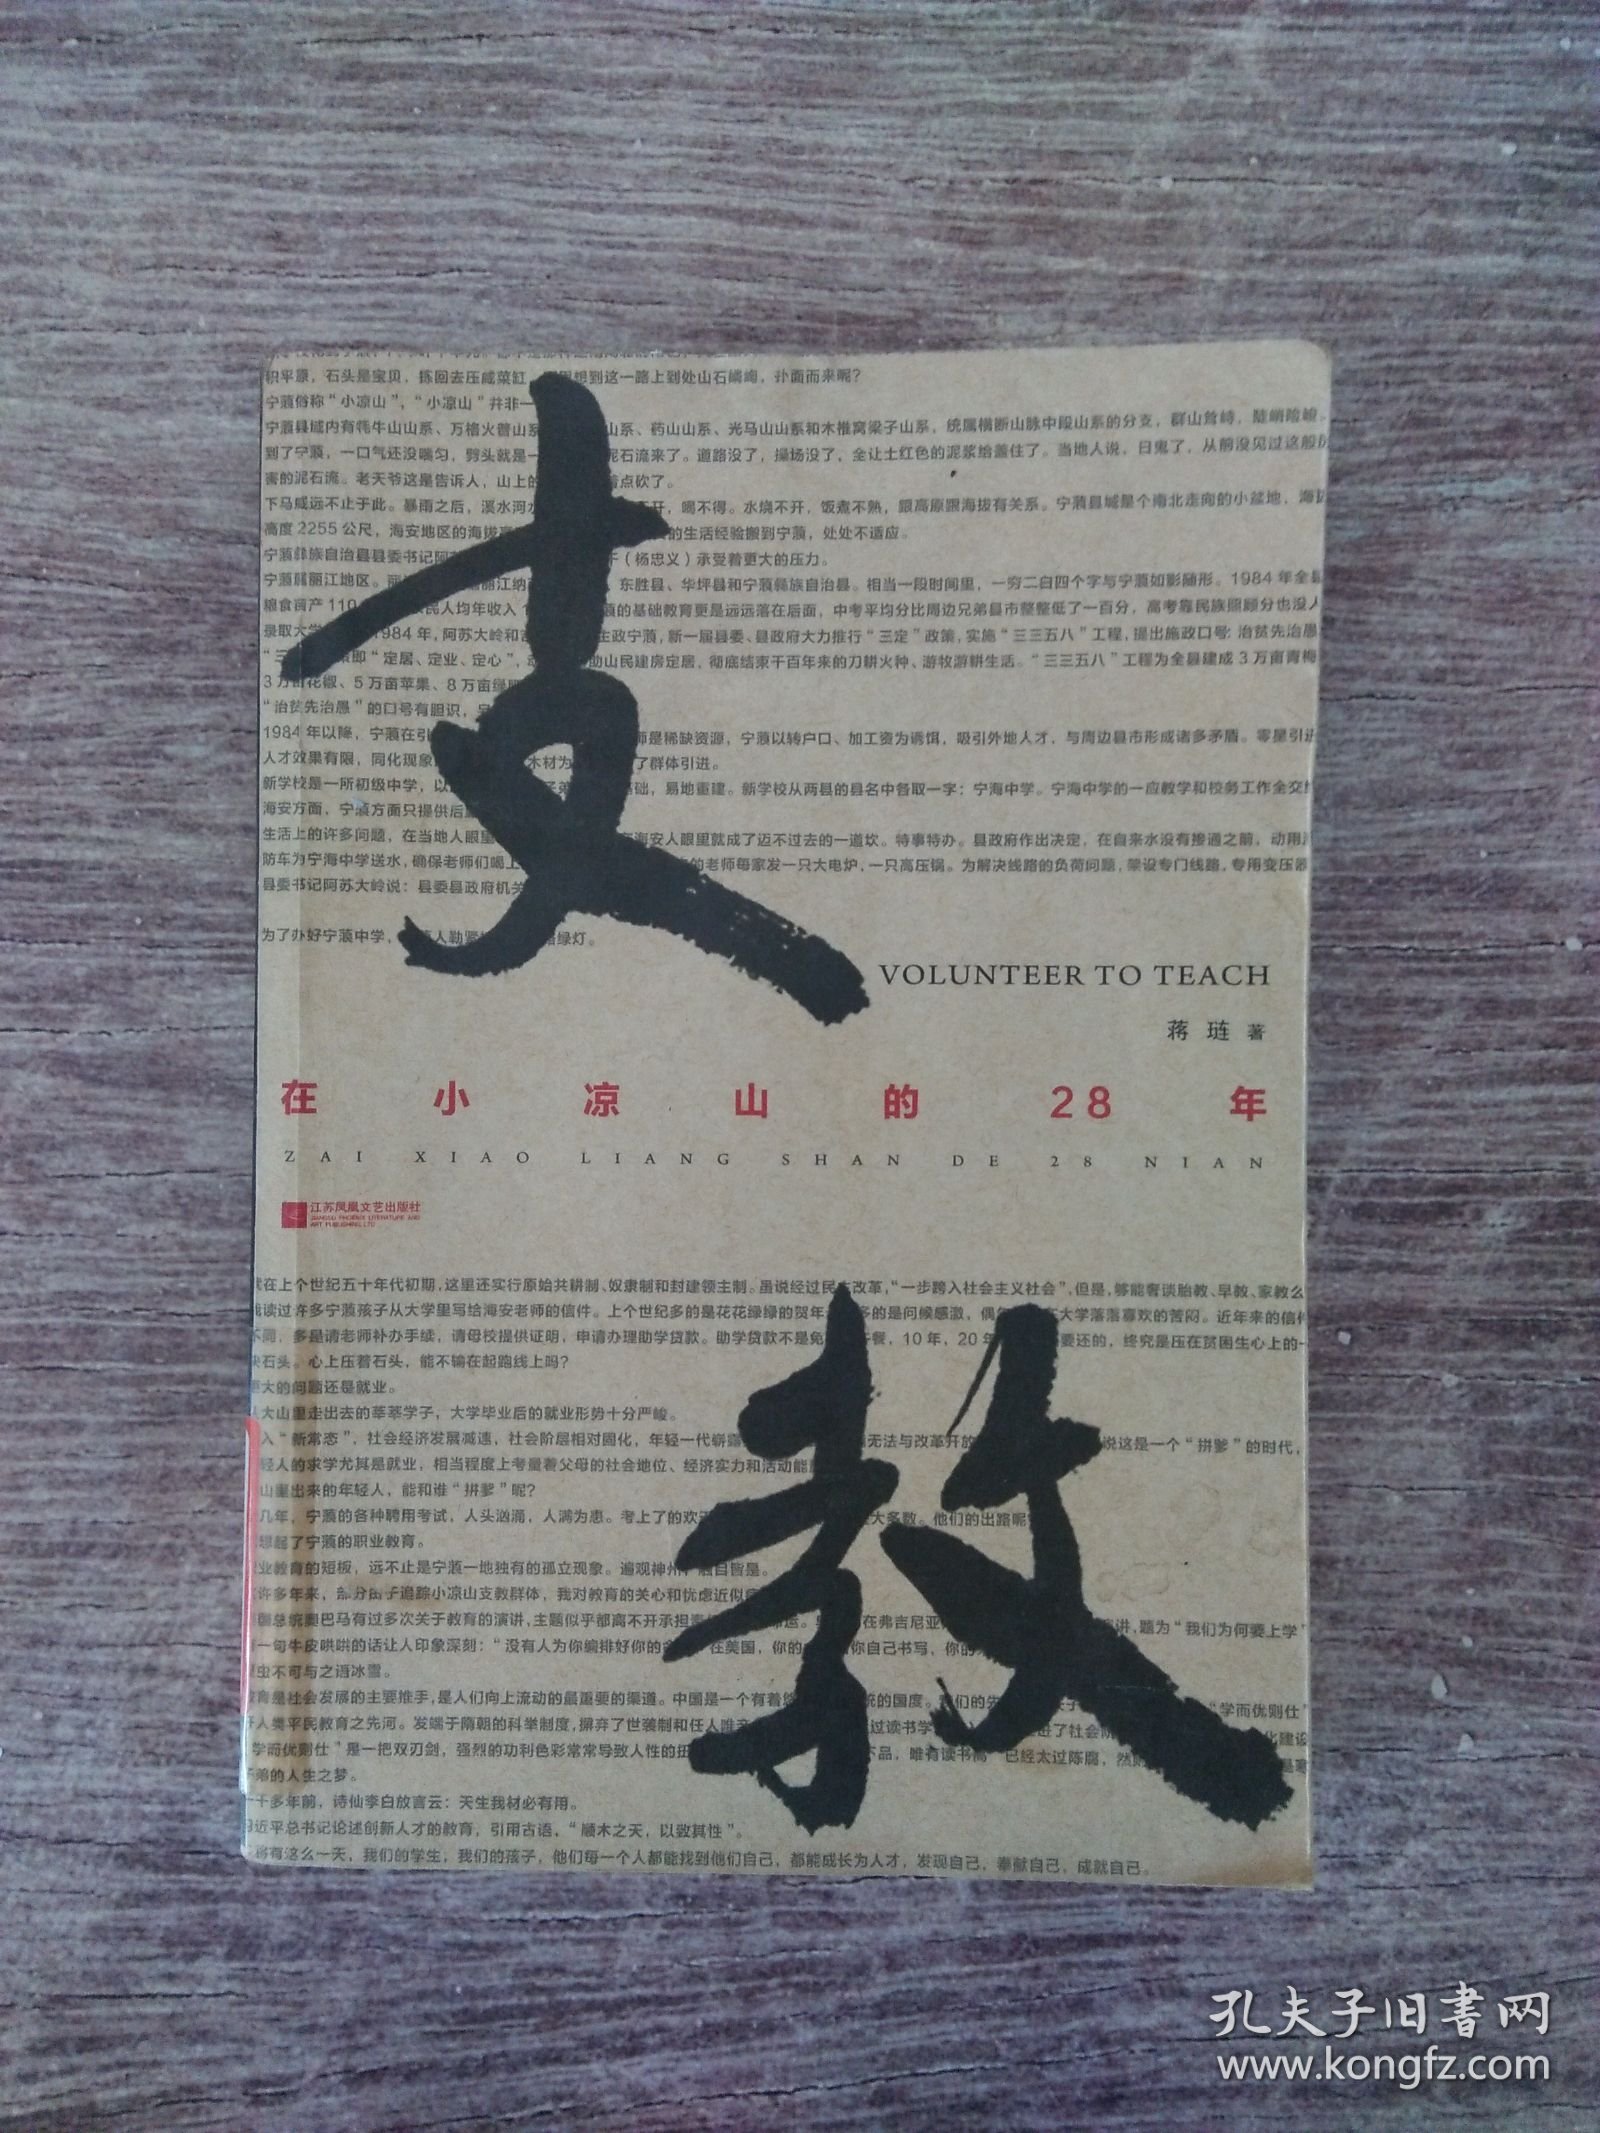 积平原，石头是宝贝，拣回去压咸菜缸，
想到这一路上到处山石嶙峋，扑面而来呢？
宁蒗俗称“小凉山”，“小凉山”并非一
宁蒗县域内有牦牛山山系、万格火普山系
山系、药山山系、光马山山系和木椎窝梁子山系，统属横断山脉中段山系的分支，群山耸峙，陡峭险峻。
到了宁蒗，一口气还没喘匀，劈头就是一
泥石流来了。道路没了，操场没了，全让土红色的泥浆给盖住了。当地人说，日鬼了，从前没见过这般厉
害的泥石流。老天爷这是告诉人，山上的
点砍了。
下马威远不止于此。暴雨之后，溪水河水
开，喝不得。水烧不开，饭煮不熟，跟高原跟海拔有关系。宁蒗县城是个南北走向的小盆地，海拔
高度2255公尺，海安地区的海拔
的生活经验搬到宁蒗，处处不适应。
宁蒗彝族自治县县委书记阿
（杨忠义）承受着更大的压力。
宁蒗属丽江地区。
丽江纳
东胜县、华坪县和宁蒗彝族自治县。相当一段时间里，一穷二白四个字与宁蒗如影随形。1984年全县
粮食亩产110
民人均年收入
的基础教育更是远远落在后面，中考平均分比周边兄弟县市整整低了一百分，高考靠民族照顾分也没人
录取大学
1984年，阿苏大岭和
主政宁蒗，新一届县委、县政府大力推行“三定”政策，实施“三三五八”工程，提出施政口号：治贫先治愚
即“定居、定业、定心”，
助山民建房定居，彻底结束千百年来的刀耕火种、游牧游耕生活。“三三五八”工程为全县建成3万亩青梅
3万亩花椒、5万亩苹果、8万亩绿肥
“治贫先治愚”的口号有胆识，
1984年以降，宁蒗在引
师是稀缺资源，宁蒗以转户口、加工资为诱饵，吸引外地人才，与周边县市形成诸多矛盾。零星引进
人才效果有限，同化现象
木材为
了群体引进。
新学校是一所初级中学，以
础，易地重建。新学校从两县的县名中各取一字：宁海中学。宁海中学的一应教学和校务工作全交给
海安方面，宁蒗方面只提供后
生活上的许多问题，在当地人眼里
海安人眼里就成了迈不过去的一道坎。特事特办。县政府作出决定，在自来水没有接通之前，动用消
防车为宁海中学送水，确保老师们喝上
的老师每家发一只大电炉，一只高压锅。为解决线路的负荷问题，架设专门线路，专用变压器
县委书记阿苏大岭说：县委县政府机关
为了办好宁蒗中学，
人勒紧
绿灯。
支
VOLUNTEER TO TEACH
蒋琏 著
在小凉山的28年
ZAI XIAO LIANG SHAN DE 28 NIAN
江苏凤凰文艺出版社
JIANGSU PHOENIX LITERATURE AND
ART PUBLISHING, LTD
在上个世纪五十年代初期，这里还实行原始共耕制、奴隶制和封建领主制。虽说经过民主改革，“一步跨入社会主义社会”，但是，够能奢谈胎教、早教、家教么
我读过许多宁蒗孩子从大学里写给海安老师的信件。上个世纪多的是花花绿绿的贺年
多的是问候感激，偶
大学落落寡欢的苦闷。近年来的信件
不同，多是请老师补办手续，请母校提供证明，申请办理助学贷款。助学贷款不是免
餐，10年，20年
要还的，终究是压在贫困生心上的一
块石头。心上压着石头，能不输在起跑线上吗？
更大的问题还是就业。
从大山里走出去的莘莘学子，大学毕业后的就业形势十分严峻。
入“新常态”，社会经济发展减速，社会阶层相对固化，年轻一代崭露
无法与改革开放
说这是一个“拼爹”的时代，
轻人的求学尤其是就业，相当程度上考量着父母的社会地位、经济实力和活动能
山里出来的年轻人，能和谁“拼爹”呢？
几年，宁蒗的各种聘用考试，人头汹涌，人满为患。考上了的欢
大多数。他们的出路呢
想起了宁蒗的职业教育。
业教育的短板，远不止是宁蒗一地独有的孤立现象。遍观神州，触目皆是。
许多年来，部分由于追踪小凉山支教群体，我对教育的关心和忧虑近似
总统奥巴马有过多次关于教育的演讲，主题似乎都离不开承担责
在弗吉尼亚
讲，题为“我们为何要上学”
一句牛皮哄哄的话让人印象深刻：“没有人为你编排好你的
在美国，你的
你自己书写，你的
虫不可与之语冰雪。
教育是社会发展的主要推手，是人们向上流动的最重要的渠道。中国是一个有着
统的国度。我们的先
“学而优则仕”
人类平民教育之先河。发端于隋朝的科举制度，摒弃了世袭制和任人唯亲
过读书学
进了社会阶
建设
学而优则仕”是一把双刃剑，强烈的功利色彩常常导致人性的扭
下品，唯有读书高”已经太过陈腐，然
弟的人生之梦。
一千多年前，诗仙李白放言云：天生我材必有用。
习近平总书记论述创新人才的教育，引用古语，“顺木之天，以致其性”。
将有这么一天，我们的学生，我们的孩子，他们每一个人都能找到他们自己，都能成长为人才，发现自己，奉献自己，成就自己。
教
孔夫子旧书网
www.kongfz.com